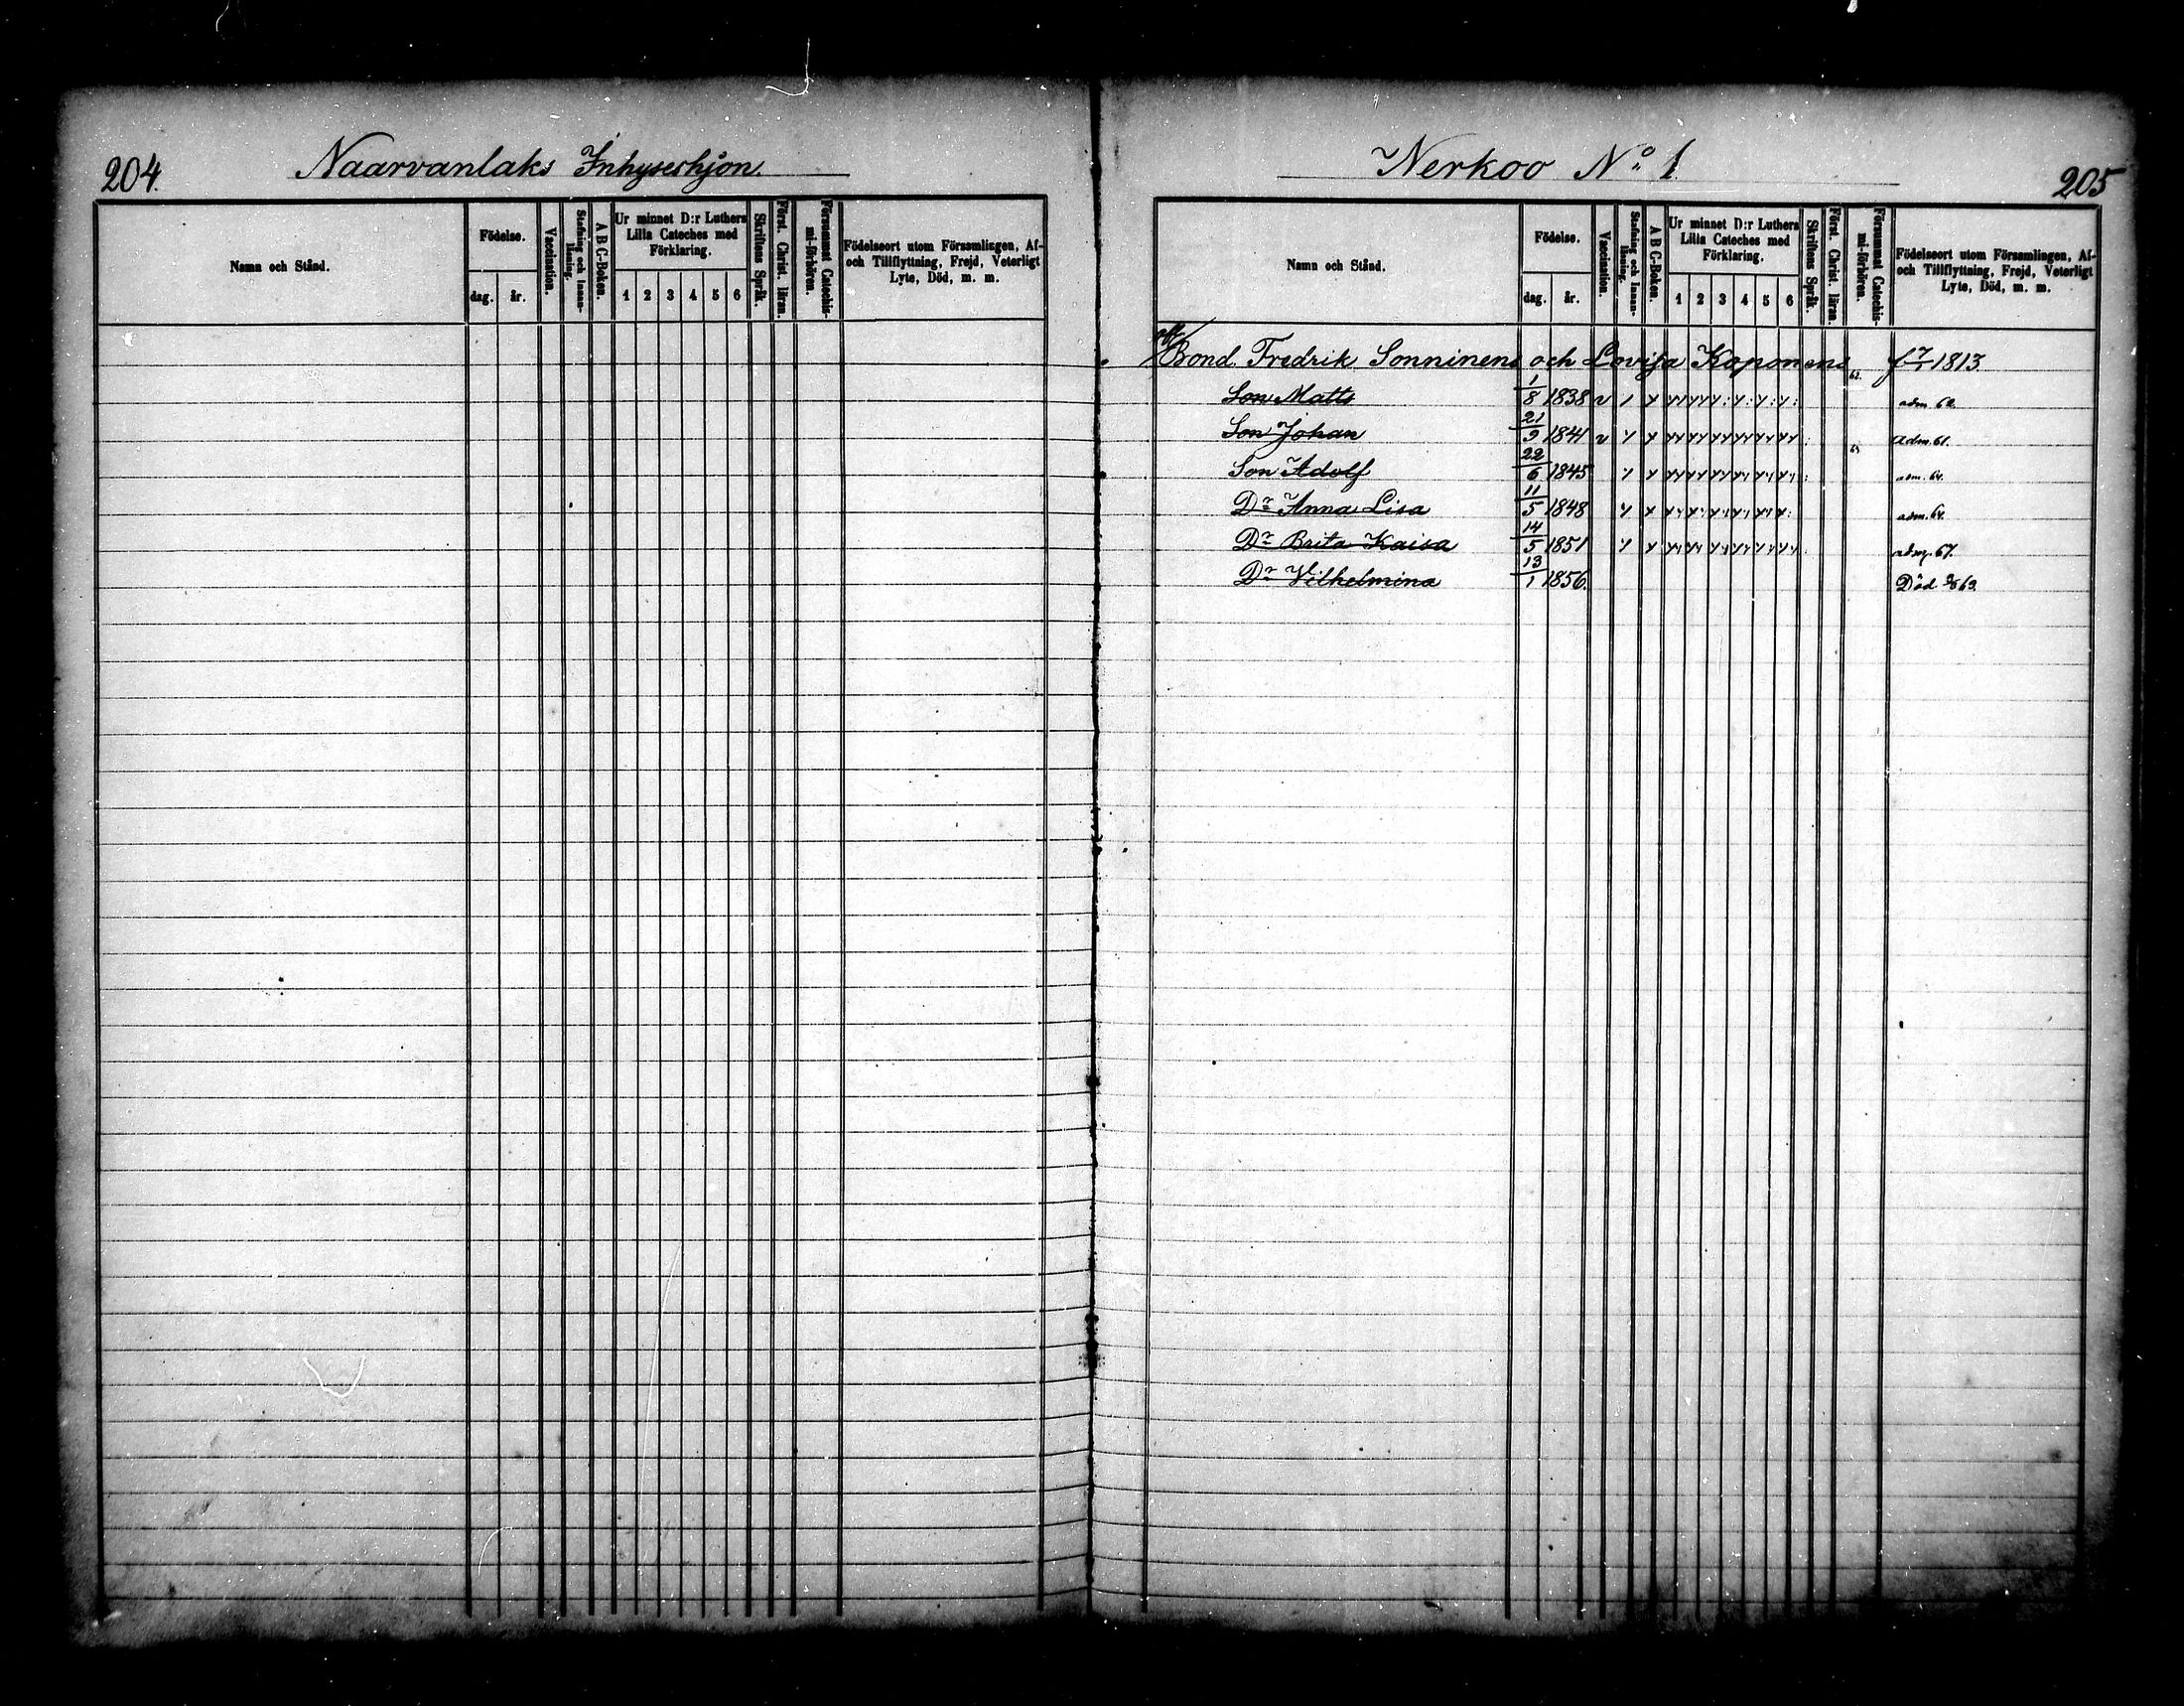 204.
Naarvanlaks Inhyseshjon.
Namn och Stånd.
Födelse.
dag.
år.
Vaccination.
Stafning och Innan-läsning.
A B C-Boken.
Ur minnet D:r Luthers
Lilla Cateches med
Förklaring.
1 2 3 4 5 6
Skriftens Språk.
Först. Christ. läran.
Försummat Catechis-mi-förhören.
Födelseort utom Församlingen, Af-
och Tillflyttning, Frejd, Veterligt
Lyte, Död, m. m.
Nerkoo No 1
205
Namn och Stånd.
Födelse.
dag.
år.
Vaccination.
Stafning och Innan-läsning.
A B C-Boken.
Ur minnet D:r Luthers
Lilla Cateches med
Förklaring.
1 2 3 4 5 6
Skriftens Språk.
Först. Christ. läran.
Försummat Catechis-mi-förhören.
Födelseort utom Församlingen, Af-
och Tillflyttning, Frejd, Veterligt
Lyte, Död, m. m.
Bond. Fredrik Sonninens och Lovisa Kaponens 1813
Son Matts 1/8 1838 62. adm. 62.
Son Johan 21/9 1841 adm. 61.
Son Adolf 22/6 1845 adm. 64.
Dr Anna Lisa 11/5 1848 adm. 64.
Dr Brita Kaisa 14/5 1851 adm. 67.
Dr Vilhelmina 13/1 1856. Död 63.